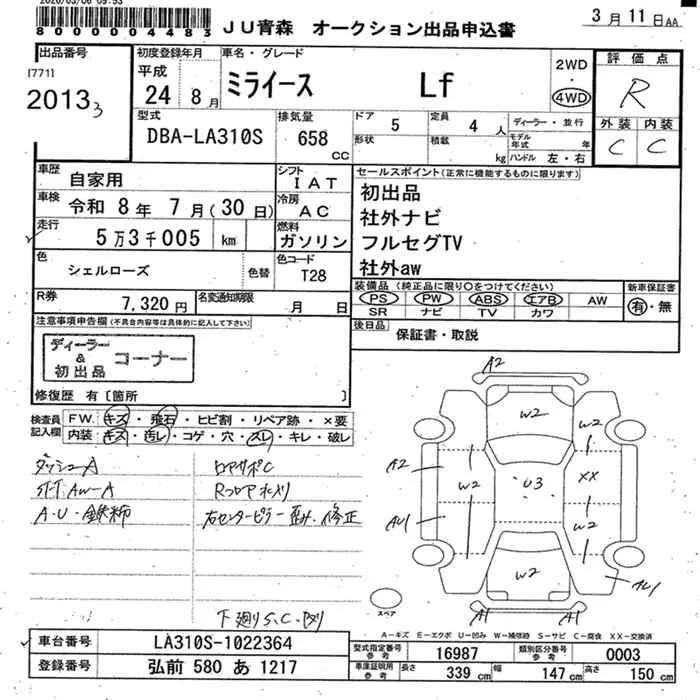 2020/03/06 09:53
8000004483
JU青森 オークション出品申込書
3月11日AA
出品番号
[771]
2013 3
初度登録年月
平成
24 8月
車名・グレード
ミライース Lf
2WD
・
4WD
評価点
R
外装 内装
C C
型式
DBA-LA310S
排気量
658
CC
ドア
5
定員
4 人
形状
積載
kg
ディーラー・並行
モデル年式 年
ハンドル 左・右
車歴
自家用
車検 令和 8年 7月(30日)
走行
5万3千005 km
色
シェルローズ
色替
シフト
IAT
冷房
AC
燃料
ガソリン
色コード
T28
セールスポイント(正常に機能するものに限ります)
初出品
社外ナビ
フルセグTV
社外aw
R券
7,320円
名変通知期限
月 日
装備品 (純正品に限り〇をつけてください)
PS PW ABS エアB AW
SR ナビ TV カワ
新車保証書
有・無
後日品
保証書・取説
注意事項申告欄(不具合内容等は具体的に記入して下さい)
ディーラー
&
初出品
コーナー
修復歴 有〔箇所 〕
検査員
記入欄
FW. キズ・飛石・ヒビ割・リペア跡・×要
内装・キズ・汚レ・コゲ・穴・スレ・キレ・破レ
ダッシュA
Aw-A
A・U・鉄柿
ロアサポC
Rフロア
右センターピラー歪み・修正
下廻りS.C.
A2
W2
W2
A2
W2
U3
XX
AU1
W2
W2
AU1
A1
A1
スペア
A-キズ E-エクボ U-凹み W-補修跡 S-サビ C-腐食 XX-交換済
車台番号
LA310S-1022364
型式指定番号
参考
16987
類別区分番号
参考
0003
登録番号
弘前 580 あ 1217
車庫証明用
参考
長さ 339 cm 幅 147 cm 高さ 150 cm